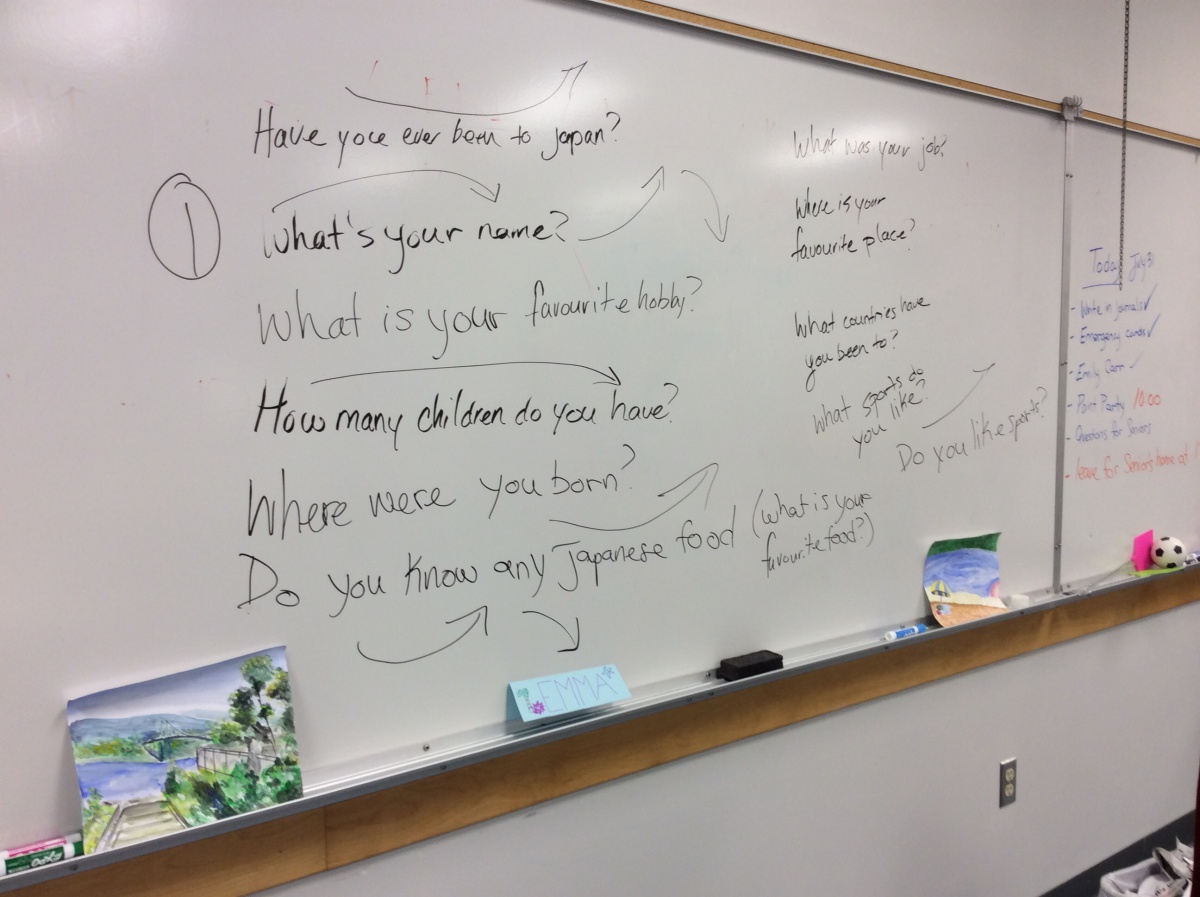 Have you ever been to Japan?
1
What's your name?
What is your favourite hobby?
How many children do you have?
Where were you born?
Do you know any Japanese food (what is your
favourite food?)
What was your job?
Where is your
favourite place?
What countries have
you been to?
What sports do
you like?
Do you like sports?
Today July 31
- Write in journals ✓
- Emergency cards ✓
- Emily Carr ✓
- Paint Party 10:00
- Questions for Seniors
- Leave for Senior's home at 1
EMMA
EXPO